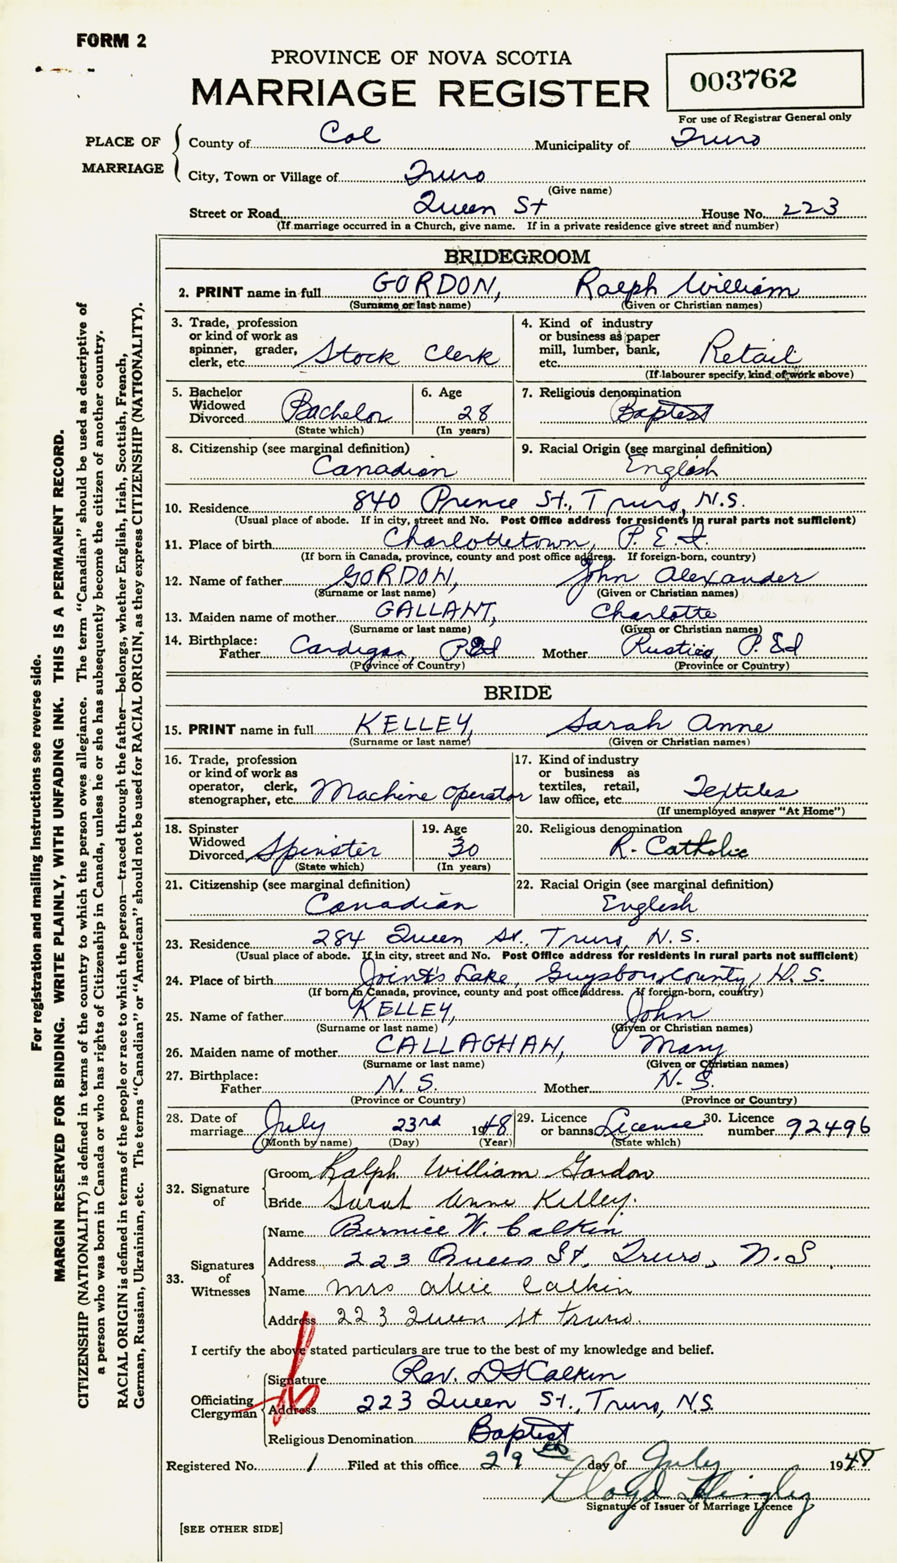 FORM 2
PROVINCE OF NOVA SCOTIA
MARRIAGE REGISTER
003762
For use of Registrar General only
PLACE OF MARRIAGE
County of Col Municipality of Truro
City, Town or Village of Truro
(Give name)
Street or Road Queen St House No. 223
(If marriage occurred in a Church, give name. If in a private residence give street and number)
BRIDEGROOM
2. PRINT name in full GORDON, Ralph William
(Surname or last name) (Given or Christian names)
3. Trade, profession or kind of work as spinner, grader, clerk, etc. Stock Clerk
4. Kind of industry or business as paper mill, lumber, bank, etc. Retail
(If labourer specify, kind of work above)
5. Bachelor Widowed Divorced Bachelor
(State which)
6. Age 28
(In years)
7. Religious denomination Baptist
8. Citizenship (see marginal definition) Canadian
9. Racial Origin (see marginal definition) English
10. Residence 840 Prince St., Truro, N.S.
(Usual place of abode. If in city, street and No. Post Office address for residents in rural parts not sufficient)
11. Place of birth Charlottetown, P.E.I.
(If born in Canada, province, county and post office address. If foreign-born, country)
12. Name of father GORDON, John Alexander
(Surname or last name) (Given or Christian names)
13. Maiden name of mother GALLANT, Charlotte
(Surname or last name) (Given or Christian names)
14. Birthplace: Father Cardigan, PEI Mother Rustico, P.EI
(Province of Country) (Province or Country)
BRIDE
15. PRINT name in full KELLEY, Sarah Anne
(Surname or last name) (Given or Christian names)
16. Trade, profession or kind of work as operator, clerk, stenographer, etc. Machine operator
17. Kind of industry or business as textiles, retail, law office, etc. Textiles
(If unemployed answer "At Home")
18. Spinster Widowed Divorced Spinster
(State which)
19. Age 30
(In years)
20. Religious denomination R. Catholic
21. Citizenship (see marginal definition) Canadian
22. Racial Origin (see marginal definition) English
23. Residence 284 Queen St., Truro, N.S.
(Usual place of abode. If in city, street and No. Post Office address for residents in rural parts not sufficient)
24. Place of birth Lake, Guysboro County, N.S.
(If born in Canada, province, county and post office address. If foreign-born, country)
25. Name of father KELLEY, John
(Surname or last name) (Given or Christian names)
26. Maiden name of mother CALLAGHAN, Mary
(Surname or last name) (Given or Christian names)
27. Birthplace: Father N.S. Mother N.S.
(Province or Country) (Province or Country)
28. Date of marriage July 23rd 1948
(Month by name) (Day) (Year)
29. Licence or banns License
(State which)
30. Licence number 92496
32. Signature of
Groom Ralph William Gordon
Bride Sarah Anne Kelley.
33. Signatures of Witnesses
Name Bernice W. Calkin
Address 223 Queen St, Truro, N.S.
Name Mrs Alice Calkin
Address 223 Queen St Truro.
I certify the above stated particulars are true to the best of my knowledge and belief.
Officiating Clergyman
Signature Rev. D S Calkin
Address 223 Queen St., Truro, N.S.
Religious Denomination Baptist
Registered No. 1 Filed at this office 29th day of July 1948
Lloyd
Signature of Issuer of Marriage Licence
[SEE OTHER SIDE]
For registration and mailing instructions see reverse side.
MARGIN RESERVED FOR BINDING. WRITE PLAINLY, WITH UNFADING INK. THIS IS A PERMANENT RECORD.
CITIZENSHIP (NATIONALITY) is defined in terms of the country to which the person owes allegiance. The term "Canadian" should be used as descriptive of
a person who was born in Canada or who has rights of Citizenship in Canada, unless he or she has subsequently become the citizen of another country.
RACIAL ORIGIN is defined in terms of the people or race to which the person—traced through the father—belongs, whether English, Irish, Scottish, French,
German, Russian, Ukrainian, etc. The terms "Canadian" or "American" should not be used for RACIAL ORIGIN, as they express CITIZENSHIP (NATIONALITY).